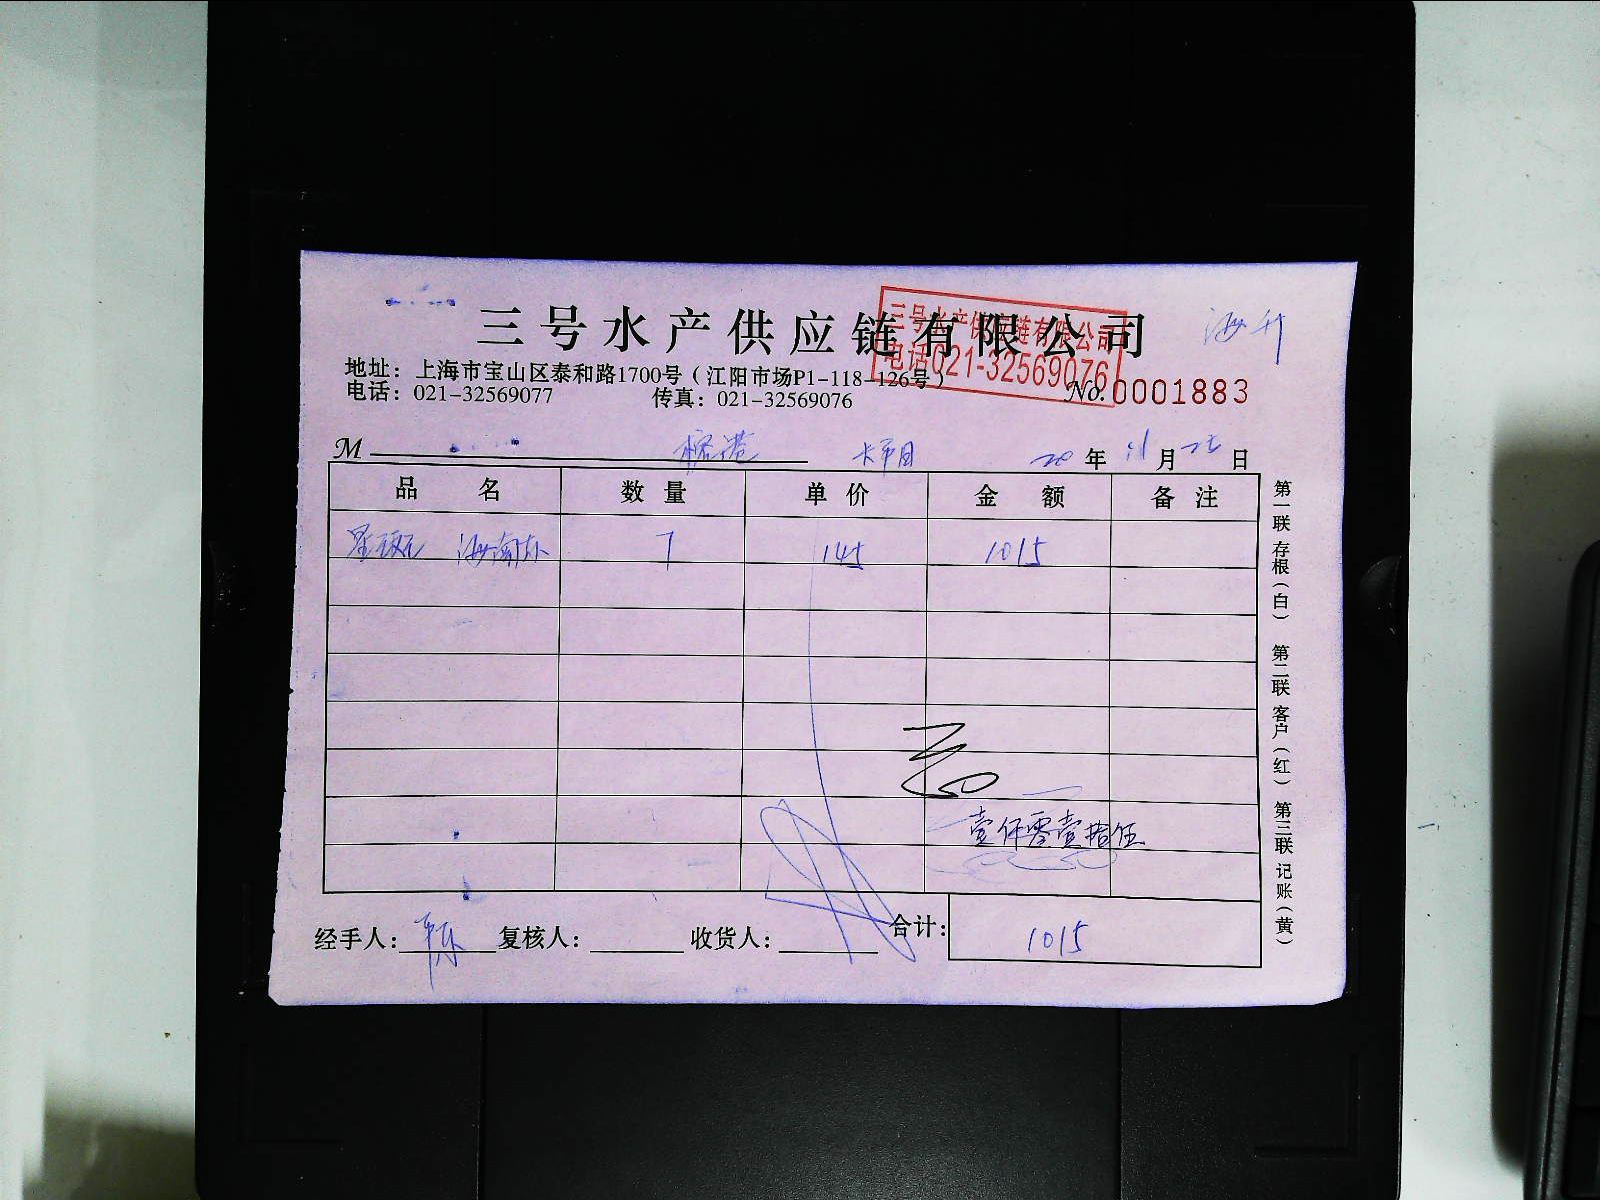 三号水产供应链有限公司
三号水产供应链有限公司
电话021-32569076
地址：上海市宝山区泰和路1700号（江阳市场P1-118-126号）
电话：021-32569077 传真：021-32569076
No. 0001883
M 20年11月 日
品名 数量 单价 金额 备注
海南 7 145 1015
壹仟零壹拾伍
经手人： 复核人： 收货人： 合计：1015
第一联 存根（白） 第二联 客户（红） 第三联 记账（黄）